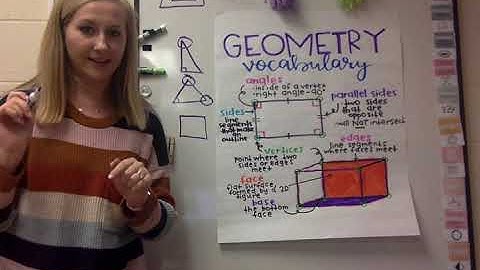 GEOMETRY
vocabulary
angles
-inside of a vertex
-right angle=90°
parallel sides
two sides
that are
opposite
-will NOT intersect
sides
line
segments
that make an
outline
vertices
point where two
sides or edges
meet
edges
line segments
where faces meet
face
flat surface
formed by a 2D
figure
base
the bottom
face